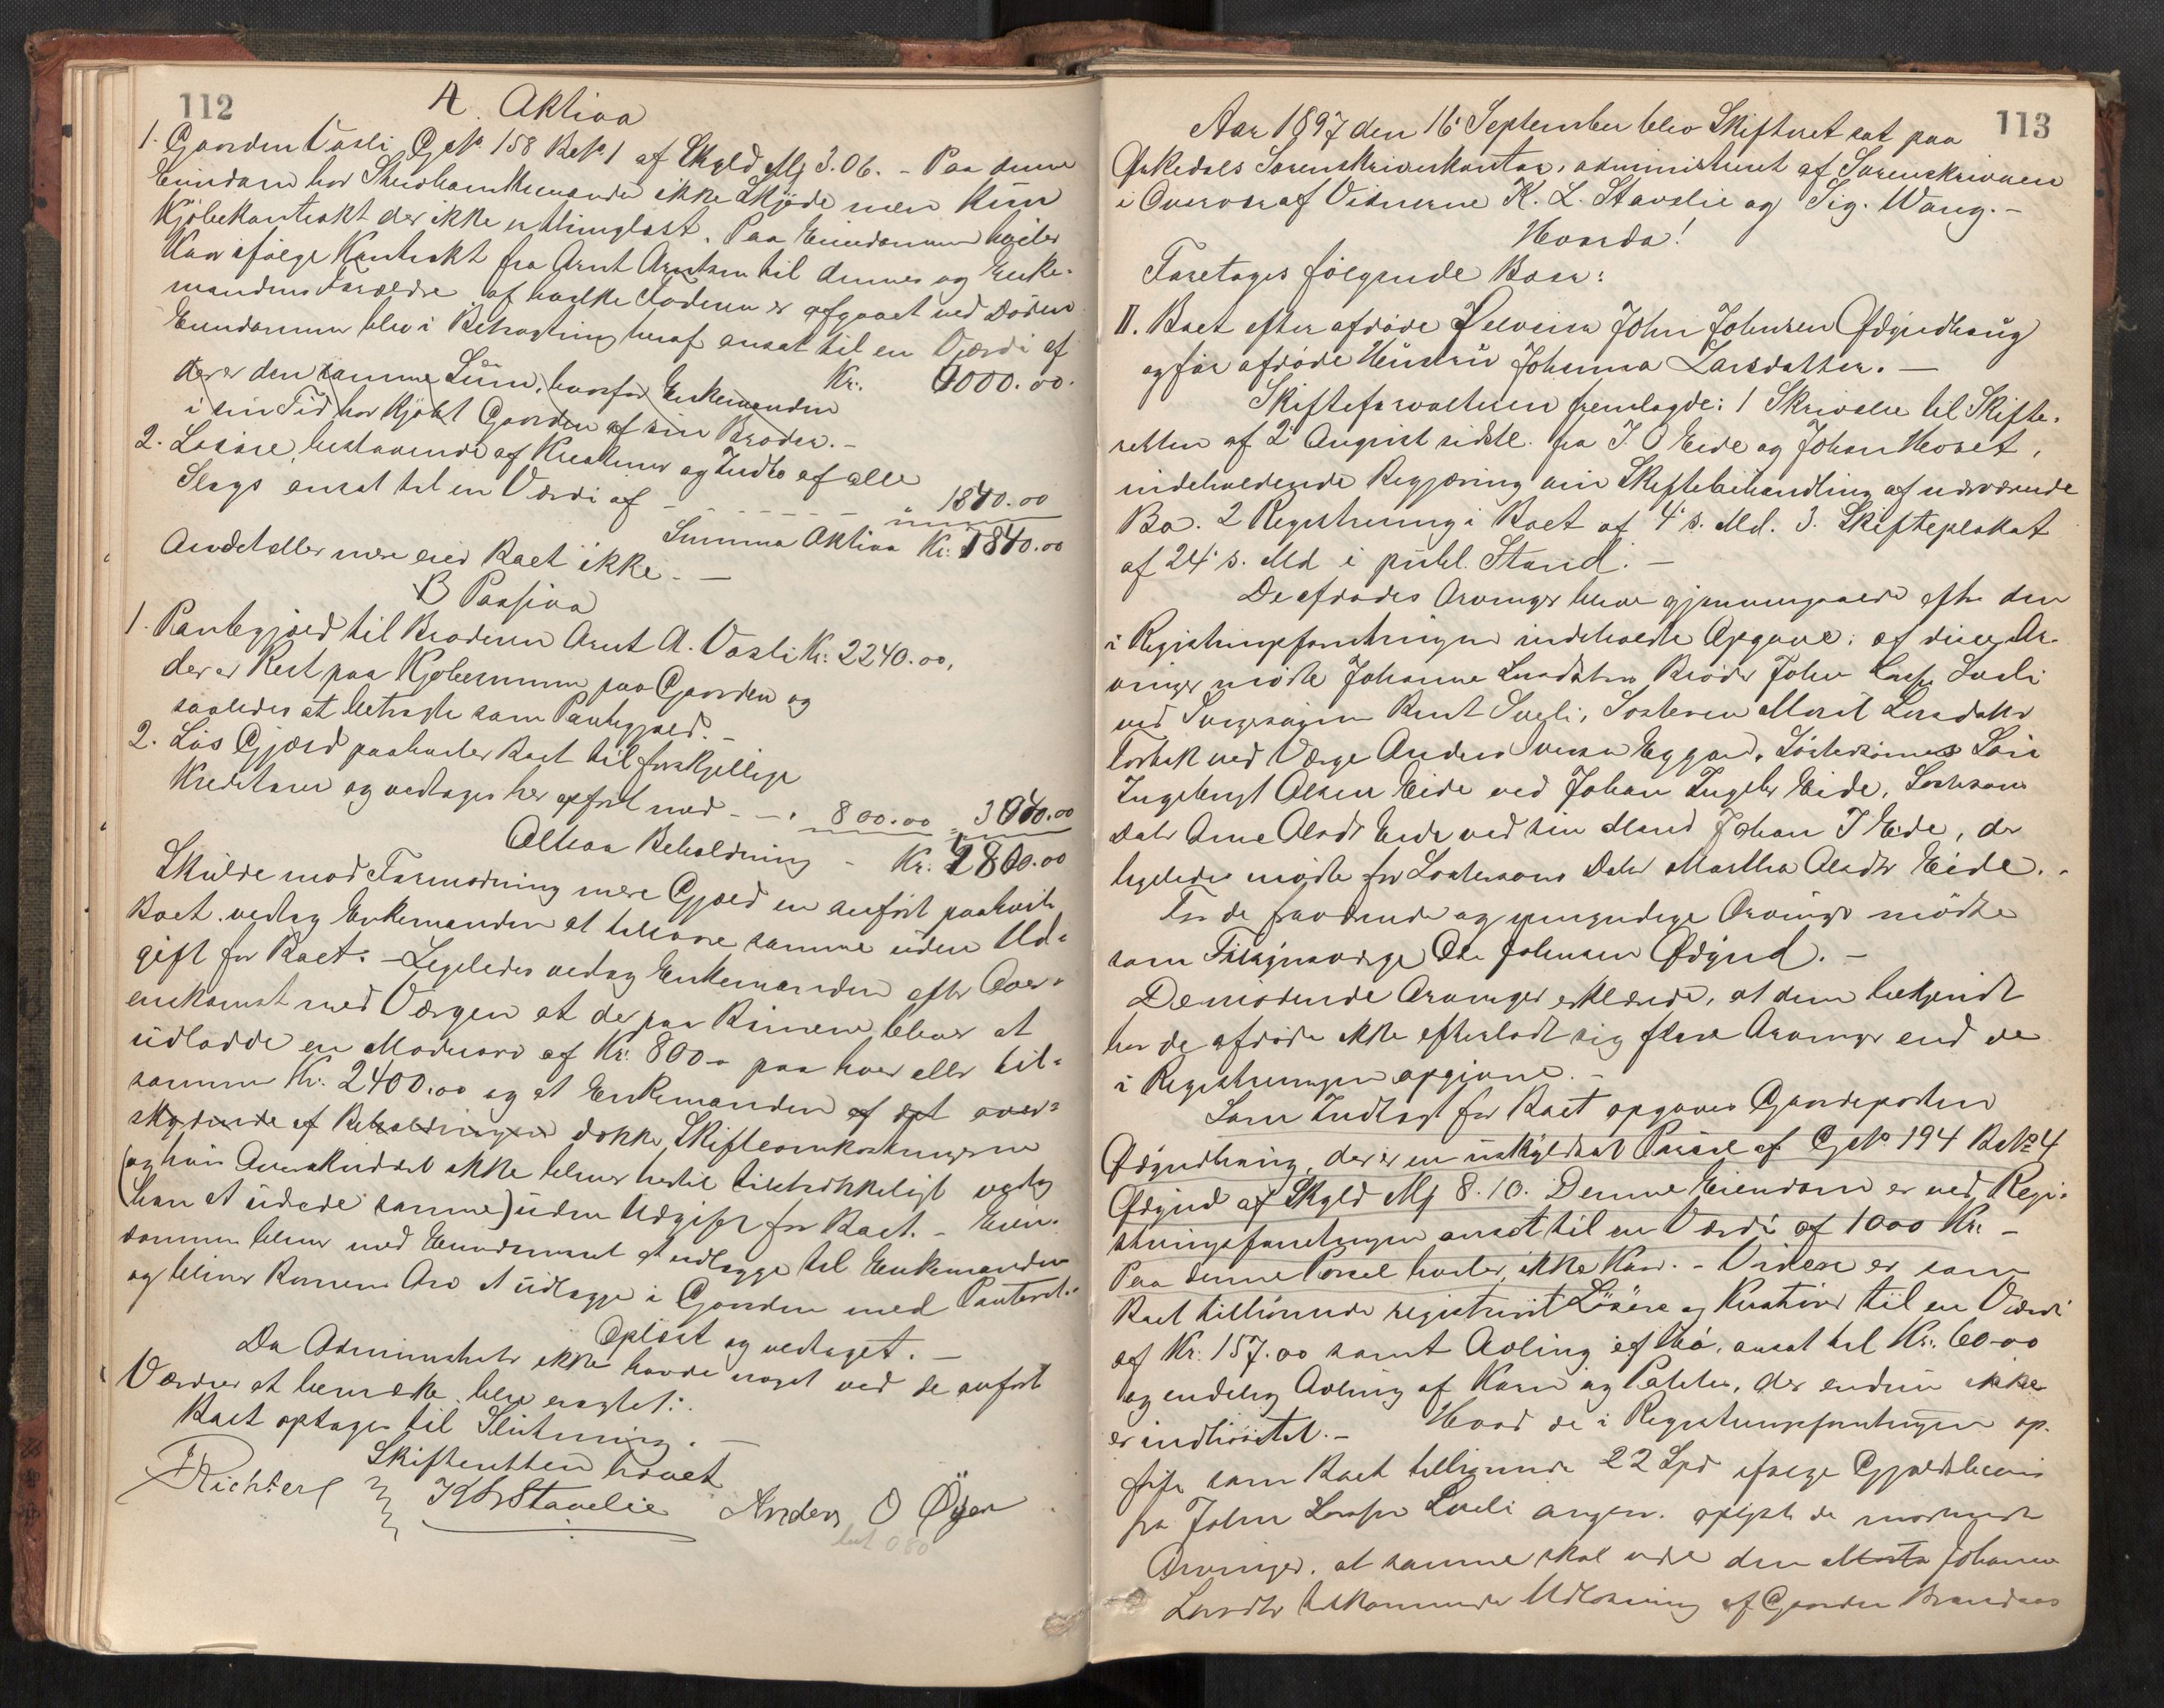 112
A. Aktiva
1. Gaarden Vasli Gds№ 158 Bs№ 1 af Skyld Mk 3.06. - Paa denne
Eiendom har Enkemanden ikke Skjøde men kun
Kjøbekontrakt der ikke er thinglæst. Paa Eiendommen hviler
Kaar ifølge Kontrakt fra Arnt Arntsen til dennes og Enke-
mandens Forældre af hvilke Faderen er afgaaet ved Døden
Eiendommen blev i Betragtning heraf ansat til en Værdi af
Kr. 4000.00.
der er den samme Sum, hvorfor Enkemanden
i sin Tid har kjøbt Gaarden af sin Broder. -
2. Løsøre, bestaaende af Kreaturer og Indbo af alle
Slags ansat til en Værdi af - - - - - - - " 1840.00
Summa Aktiva Kr. 5840.00
Andet eller mere eier Boet ikke. -
B Passiva
1. Pantegjæld til Broderen Arnt A. Vasli Kr. 2240.00,
der er Rest paa Kjøbesummen paa Gaarden og
saaledes at betragte som Pantegjæld. -
2. Løs Gjæld paahviler Boet til forskjellige
Kreditorer og vedtages her opført med - - " 800.00 = 3040.00
Altsaa Beholdning - Kr. 2800.00
Skulde mod Formodning mere Gjæld en anført paahvile
Boet vedtog Enkemanden at tilsvare samme uden Ud-
gift for Boet. - Ligeledes vedtog Enkemanden efter Over-
enskomst med Værgen at der paa Børnene bliver at
udlodde en Mødrearv af Kr. 800 - paa hver eller til-
sammen Kr. 2400.00 og at Enkemanden af det over-
skydende af Beholdningen dække Skifteomkostningerne
(og hvis Overskuddet ikke bliver hertil tilstrækkeligt vedtog
han at udrede samme) uden Udgift for Boet. - Eien-
dommen bliver med Eiendomsret at udlægge til Enkemanden
og bliver Børnenes Arv at udlægge i Gaarden med Panteret.
Oplæst og vedtaget. -
Da Administrator ikke havde noget ved de anførte
Værdier at bemærke blev eragtet:
Boet optages til Slutning. -
Skifteretten hævet
Richter K L Stavslie Anders O Øyen
113
Aar 1897 den 16 September blev Skifteret sat paa
Orkedals Sorenskriverkontor, administreret af Sorenskriveren
i Overvær af Vidnerne K. L. Stavslie og Sig. Wang. -
Hvorda!
Foretages følgende Boer:
II. Boet efter afdøde Selveier John Johnsen Ødgindhaug
og før afdøde Hustru Johanna Larsdatter. -
Skifteforvalteren fremlagde: 1 Skrivelse til Skifte-
retten af 2 August sidstl. fra J. O Eide og Johan Hovet,
indeholdende Begjæring om Skiftebehandling af nærværende
Bo. 2 Registrering i Boet af 4 s. Md. 3. Skifteplakat
af 24 s. Md i publ. Stand. -
De afdødes Arvinger blev gjennemgaaede efter den
i Registreringsforretningen indeholdte Opgave: af disse Ar-
vinger mødte Johanna Larsdatters Broder John Larsen Svesli
ved Bernt Svesli, Søsteren Marit Larsdatter
ved Værge Anders Eggen, Søstersønnens Søn
Ingebrigt Olsen Eide ved Johan Ingebr Eide, Søstersøns
Datr Arne Olsdtr Eide ved sin Mand Johan I Eide, der
ligeledes mødte for Søstersøns Datr Martha Olsdtr Eide.
For de fraværende og umyndige Arvinger mødte
som Tilsynsværge Ole Johnsen Ødgind. -
De mødende Arvinger erklærede, at dem bekjendt
har de afdøde ikke efterladt sig flere Arvinger end de
i Registreringen opgivne. -
Som Indtægt for Boet opgaves Gaardeparten
Ødgindhaug, der er en uskyldsat Parsel af Gds№ 194 Bs№ 4
Ødgind af Skyld Mk 8.10. Denne Eiendom er ved Regi-
streringsforretningen ansat til en Værdi af 1000 Kr. -
Paa denne Parsel hviler ikke Kaar. - Videre er som
Boet tilhørende registreret Løsøre og Kreaturer til en Værdi
af Kr. 157.00 samt Avling af Hø, ansat til Kr. 60.00
og endelig Avling af Korn og Poteter, der endnu ikke
er indhøstet. - Hvad de i Registreringsforretningen op-
førte som Boet tilhørende 22 Spd ifølge Gjældsbevis
fra John Larsen Svesli angaar. oplyste de mødende
Arvinger, at samme skal være den Johanna
Larsdtr tilkommende Udløsning af Gaarden